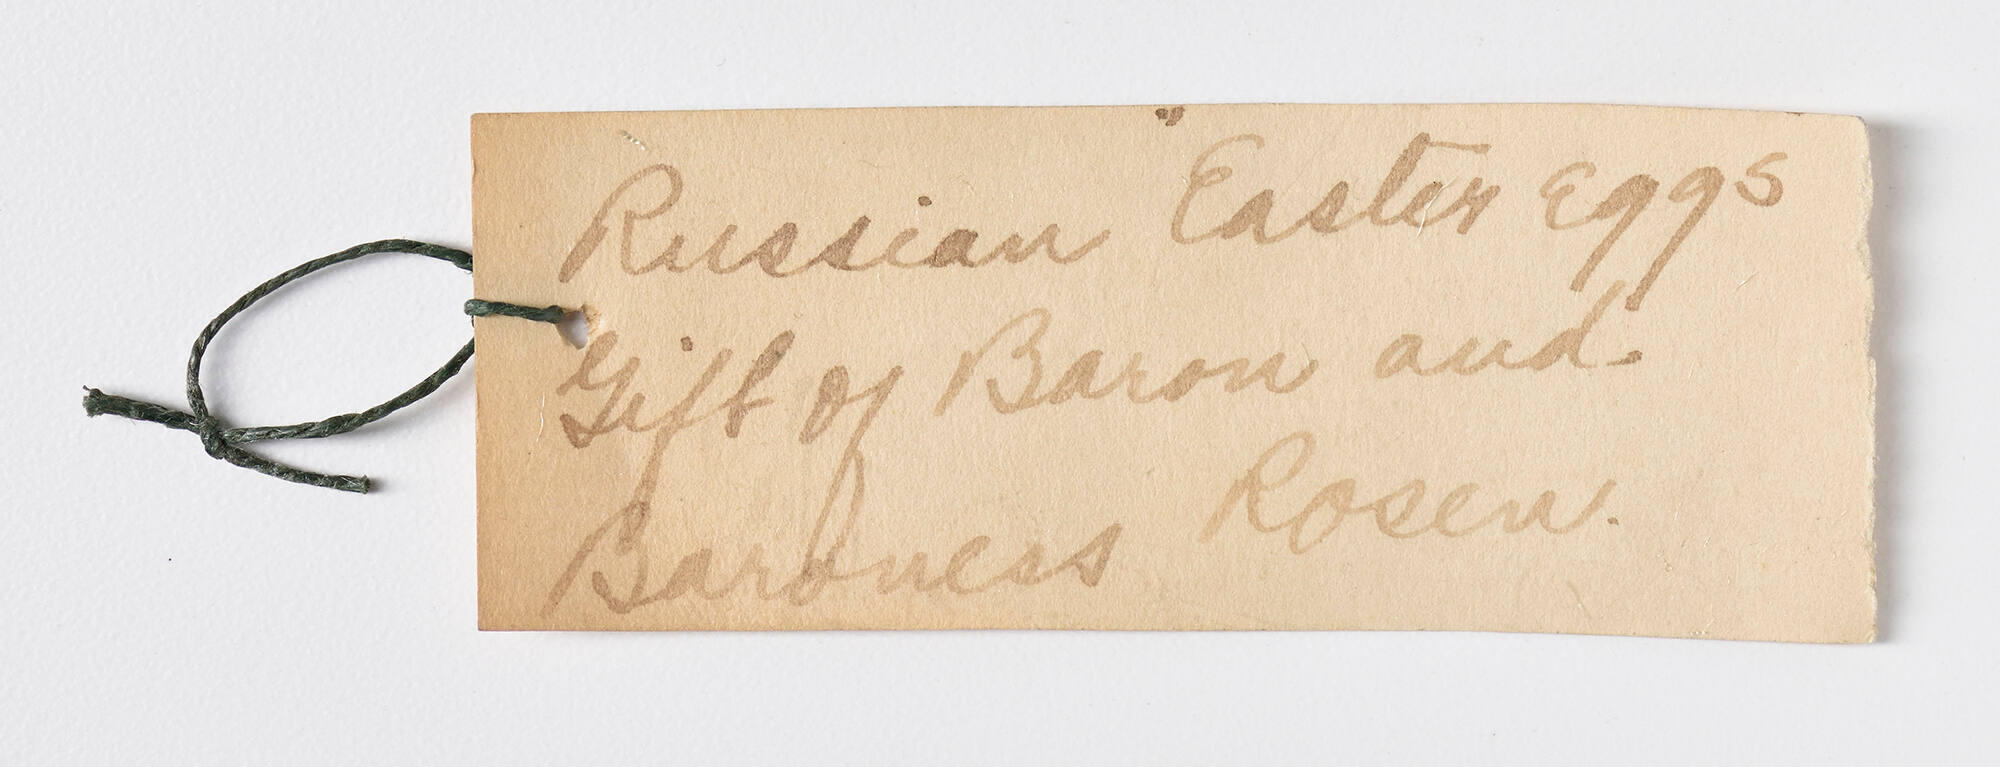 Russian Easter Eggs
Gift of Baron and
Baroness Rosen.